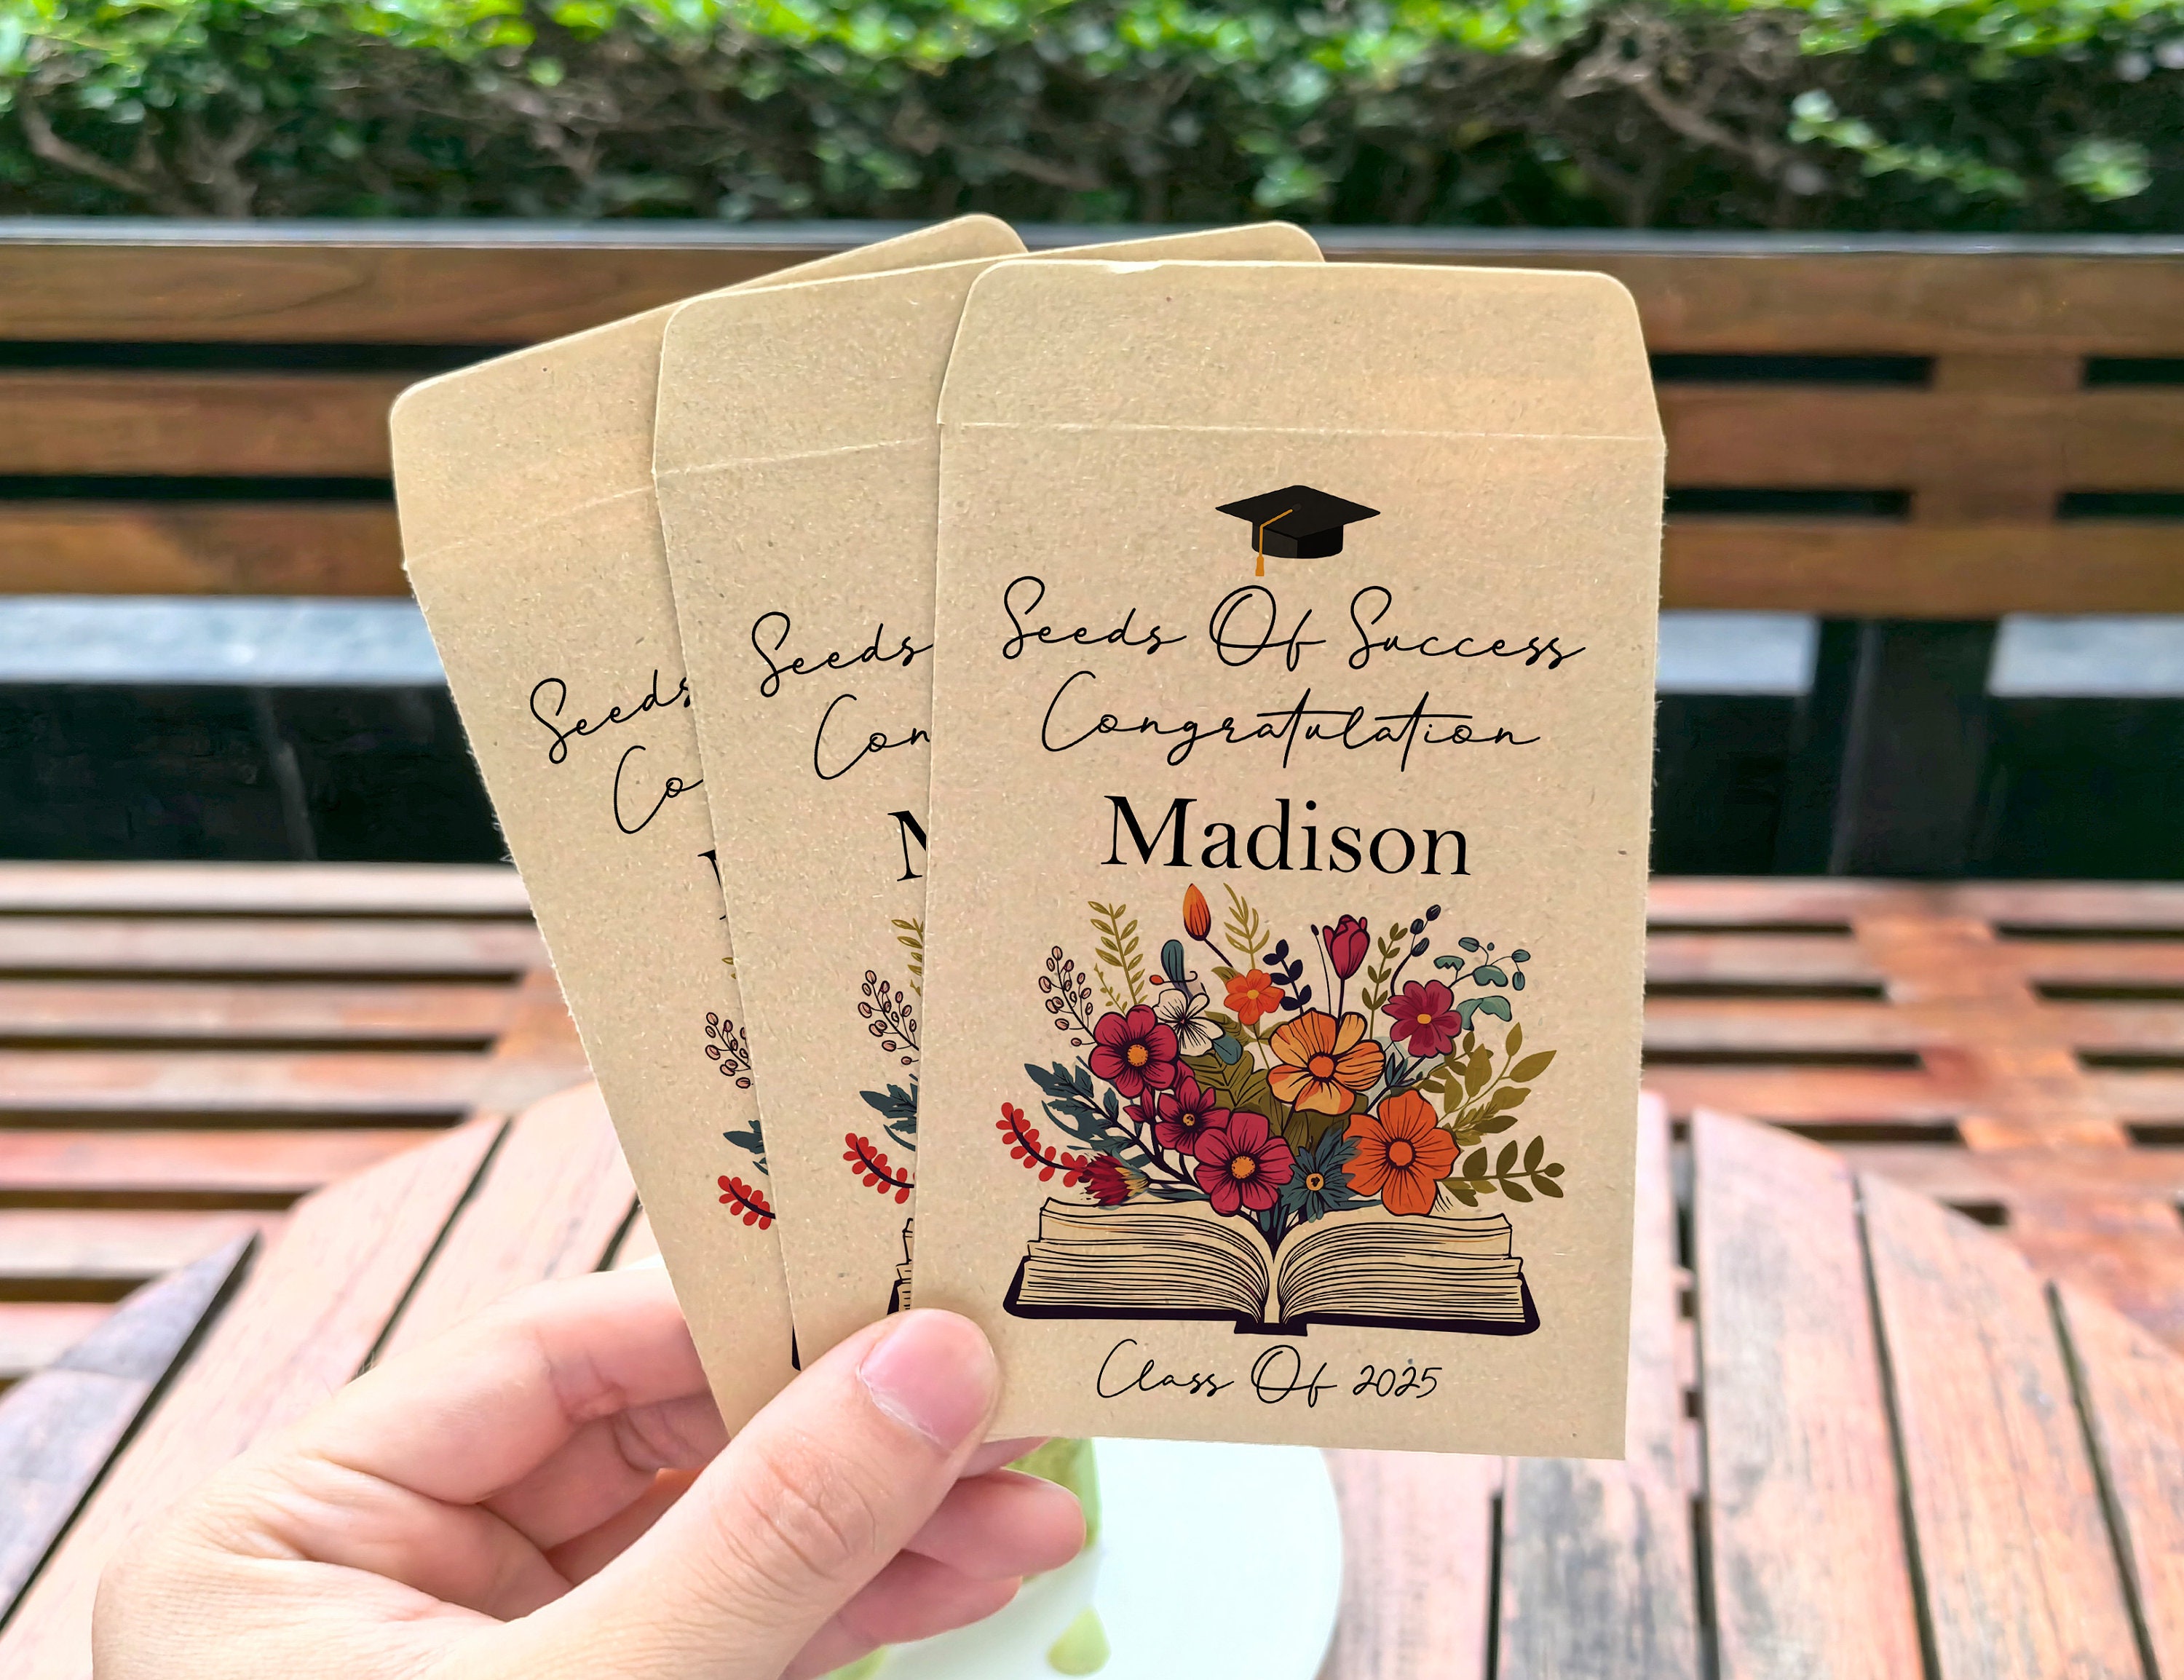 Seeds Of Success
Congratulation
Madison
Class Of 2025
Seeds
Con
M
Seeds
Co